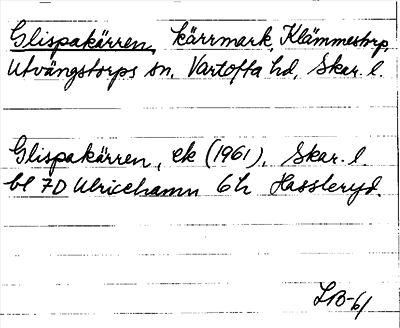 Glispakärren, kärrmark, Klämmestorp,
Utvängstorps sn, Vartofta hd, Skar. l.
Glispakärren, ek (1961), Skar. l.
bl 7D Ulricehamn 6h Hassleryd.
LB-61